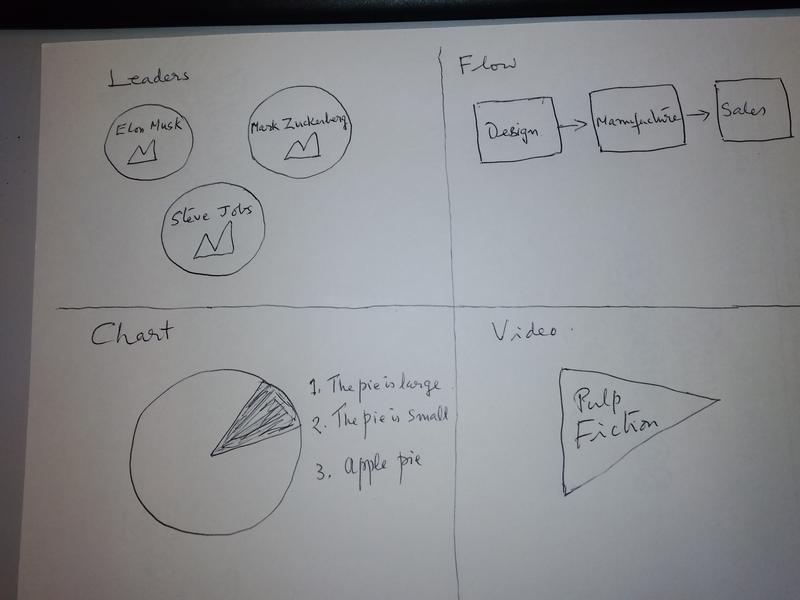 Leaders
Elon Musk
Mark Zuckerberg
Steve Jobs
Flow
Design
Manufacture
Sales
Chart
1. The pie is large
2. The pie is small
3. Apple pie
Video
Pulp
Fiction